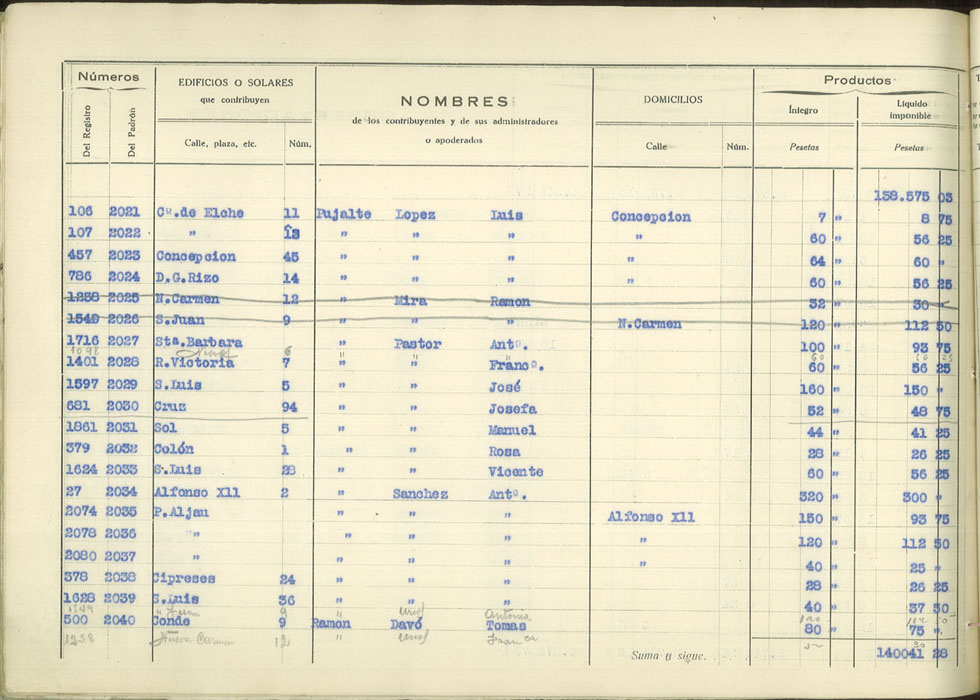 Números EDIFICIOS O SOLARES NOMBRES DOMICILIOS Productos
que contribuyen de los contribuyentes y de sus administradores Íntegro Líquido imponible
Del Registro Del Padrón Calle, plaza, etc. Núm. o apoderados Calle Núm. Pesetas Pesetas
138.575 03
106 2021 Cª.de Elche 11 Pujalte Lopez Luis Concepcion 7 " 8 75
107 2022 " " " " " 60 " 56 25
457 2023 Concepcion 45 " " " " 64 " 60 "
786 2024 D.G.Rizo 14 " " " " 60 " 56 25
1238 2025 N.Carmen 12 " Mira Ramon 32 " 30
1549 2026 S.Juan 9 " " " N.Carmen 120 " 112 50
1716 2027 Stª.Barbara " Pastor Antº. 100 " 93 75
1098 6 " " " 60
1401 2028 R.Victoria 7 " " Francº. 60 " 56 25
1597 2029 S.Luis 5 " " José 160 " 150 "
681 2030 Cruz 94 " " Josefa 52 " 48 75
1861 2031 Sol 5 " " Manuel 44 " 41 25
379 2032 Colón 1 " " Rosa 28 " 26 25
1624 2033 S.Luis 28 " " Vicente 60 " 56 25
27 2034 Alfonso XII 2 " Sanchez Antº. 320 " 300 "
2074 2035 P.Aljau " " " Alfonso XII 150 " 93 75
2078 2036 " " " " " 120 " 112 50
2080 2037 " " " " " 40 " 25 "
378 2038 Cipreses 24 " " " 28 " 26 25
1628 2039 S.Luis 36 " " " 40 " 37 50
1549 " Juan 9 " Antonia 120 112 50
500 2040 Conde 9 Ramon Davó Tomas 80 " 75 ".
1238 Nueva Carmen 12 " 30
Suma y sigue. . 140041 28